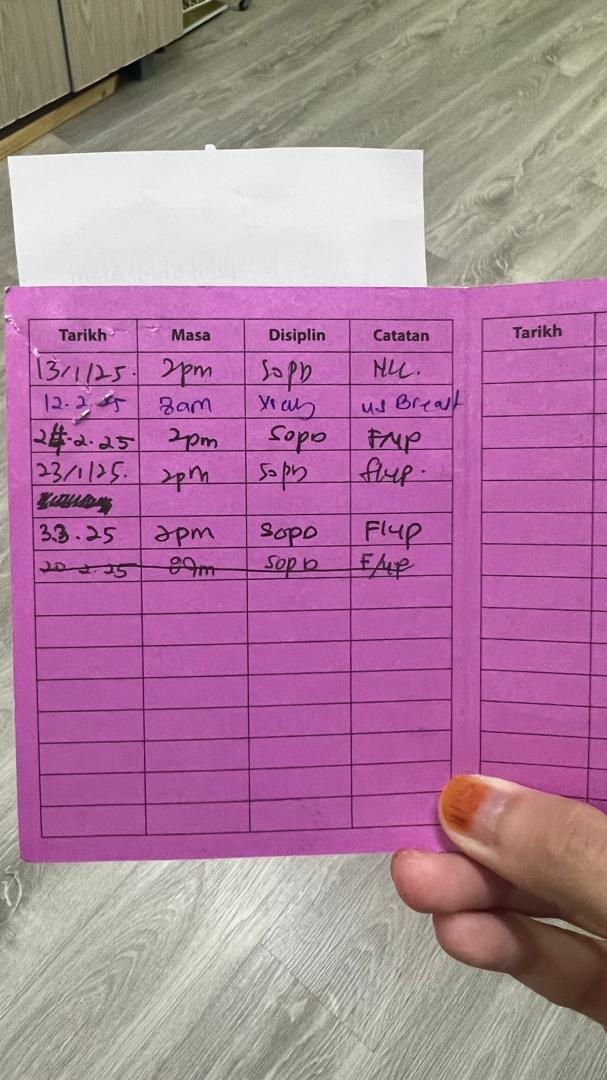 Tarikh Masa Disiplin Catatan Tarikh
13/1/25. 2pm SOPD
12.2.25 8am Xray US Breast
24.2.25 2pm SOPD F/up
23/1/25. 2pm SOPD f/up.
3.3.25 2pm SOPD F/up
20.2.25 SOPD F/up